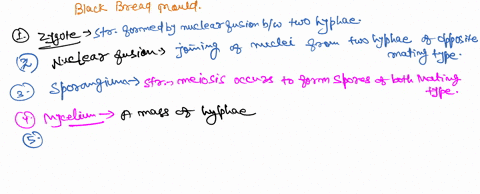 Black Bread mould.
① Zygote → str. formed by nuclear fusion b/w two hyphae.
② Nuclear fusion → joining of nuclei from two hyphae of opposite
mating type.
③. Sporangium → str. → meiosis occurs to form spores of both Mating
type.
④ Mycelium → A mass of hyphae
⑤